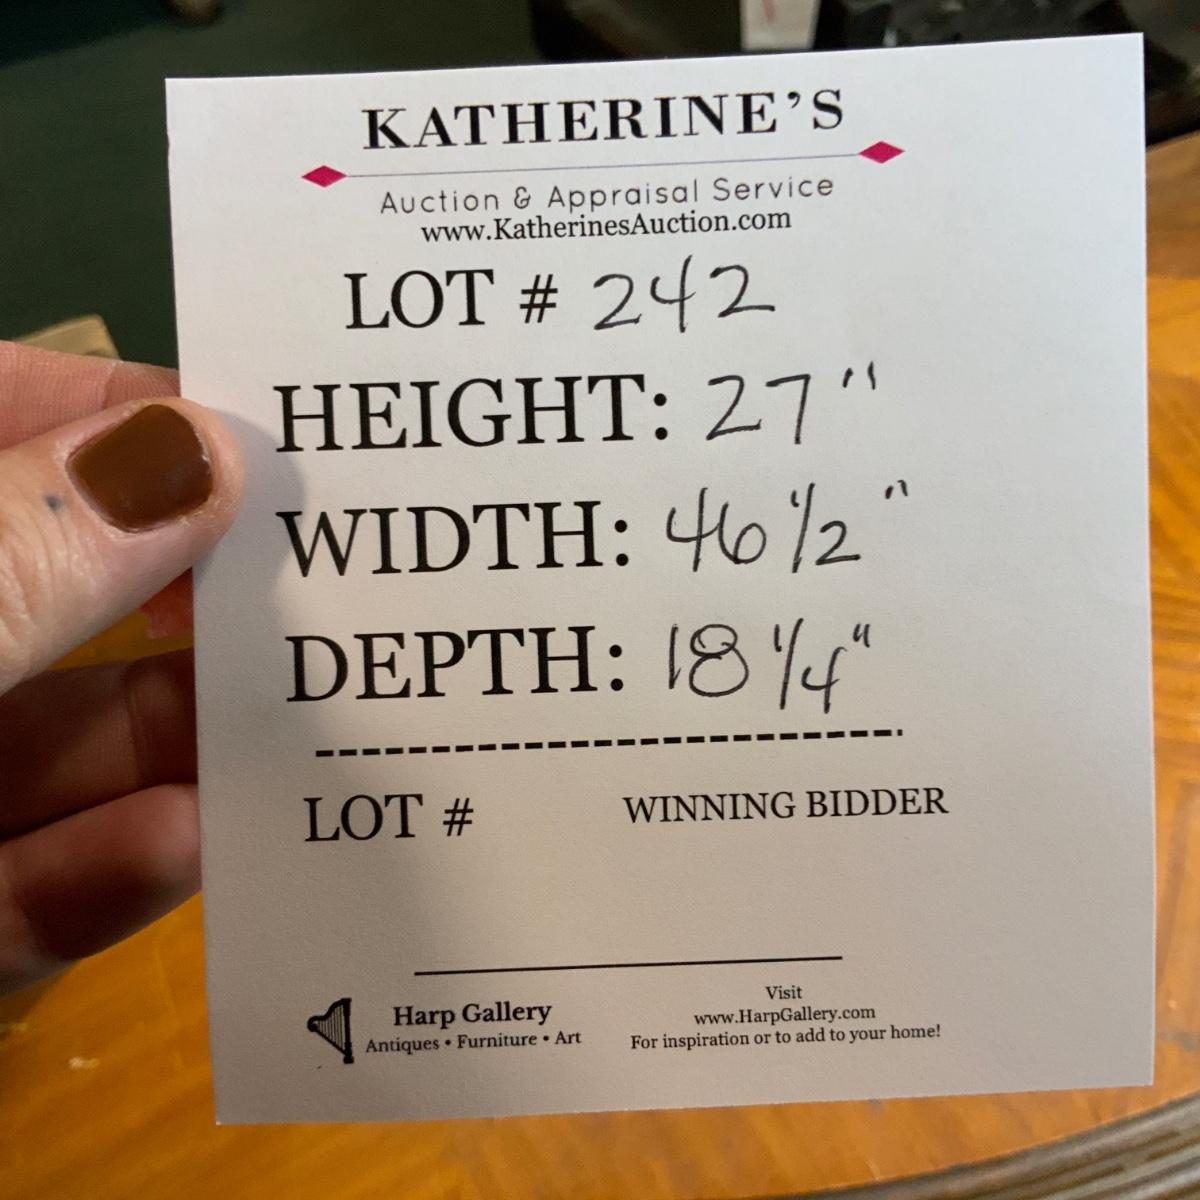 KATHERINE'S
Auction & Appraisal Service
www.KatherinesAuction.com
LOT # 242
HEIGHT: 27"
WIDTH: 46 1/2"
DEPTH: 18 1/4"
LOT # WINNING BIDDER
Harp Gallery
Antiques • Furniture • Art
Visit
www.HarpGallery.com
For inspiration or to add to your home!